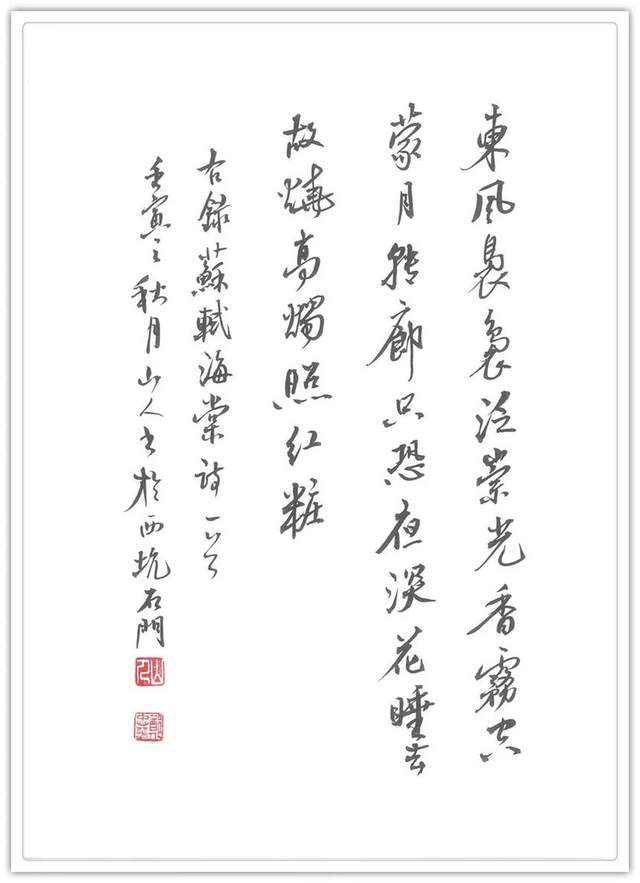 東風裊裊泛崇光香霧空
蒙月轉廊只恐夜深花睡去
故燒高燭照紅粧
右錄蘇軾海棠詩一首
壬寅之秋月山人書於西坑石門